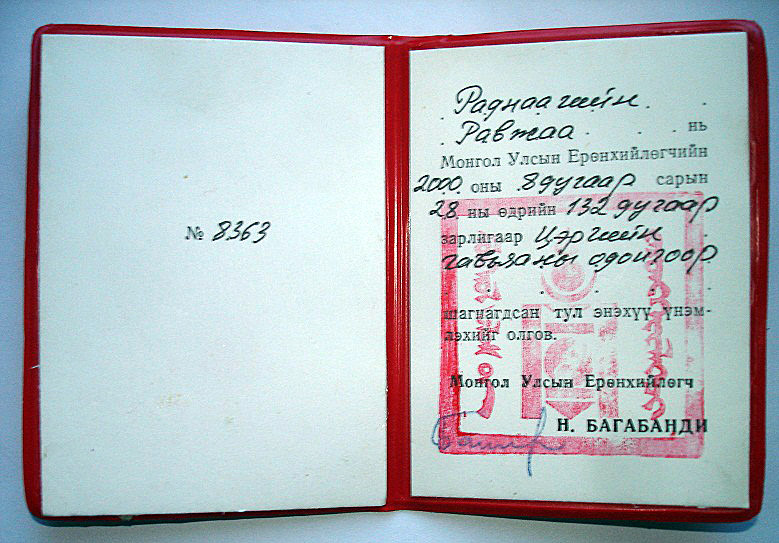 № 8363
Раднаагийн
Равжаа нь
Монгол Улсын Ерөнхийлөгчийн
2000 оны 8 дугаар сарын
28 ны өдрийн 132 дугаар
зарлигаар Цэргийн
гавьяаны одонгоор
шагнагдсан тул энэхүү үнэм-
лэхийг олгов.
Монгол Улсын Ерөнхийлөгч
Н. БАГАБАНДИ